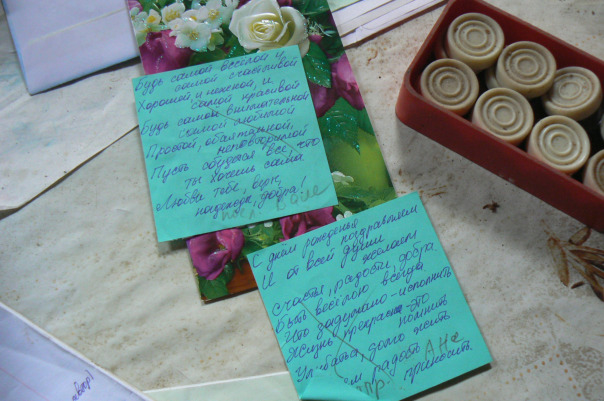 Будь самой весёлой и
самой счастливой
Хорошей и нежной, и
самой красивой
Будь самой внимательной
самой любимой
Простой, обаятельной,
неповторимой
Пусть сбудется всё, что
ты хочешь сама.
Любви тебе, веры,
надежды, добра!
С днём рожденья
поздравляем
И от всей души
желаем
счастья, радости, добра.
Быть весёлою всегда
Что задумано - исполнить
Жизнь прекрасна - это
помнить
Улыбаться, долго жить
радость
приносить.
Ане